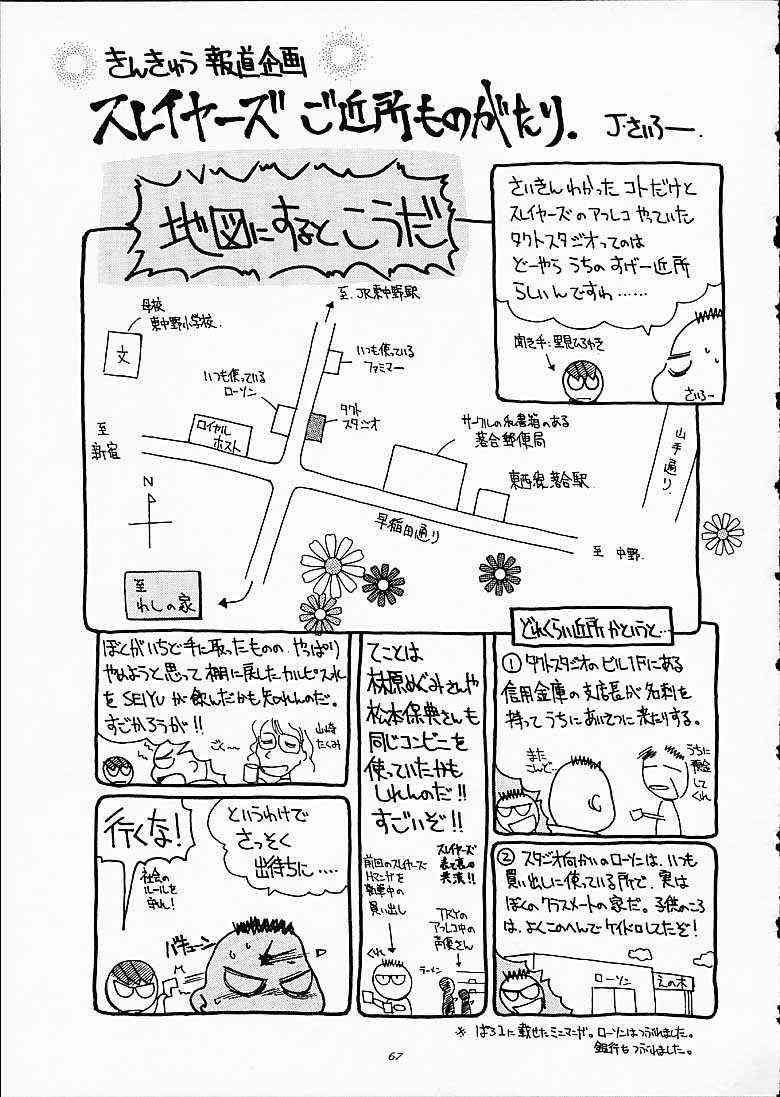 きんきゅう 報道企画
スレイヤーズ ご近所ものがたり。
J・さいろー.
さいきんわかったコトだけど
スレイヤーズのアフレコやっていた
タクトスタジオってのは
どーやら うちのすげー近所
らしいんですわ……
聞き手:里見ひろゆき
さいろー
地図にするとこうだ
至.JR東中野駅
母校
東中野小学校.
文
いつも使っている
ファミマー
いつも使っている
ローソン
タクト
スタジオ
ロイヤル
ホスト
サークルの私書箱のある
落合郵便局
東西線落合駅
山手通り
至
新宿
N
早稲田通り
至 中野.
至
わしの家
どれくらい近所かというと…
① タクトスタジオのビル1Fにある
信用金庫の支店長が名刺を
持ってうちにあいさつに来たりする。
また
さんど…
うちに
預金
して
くれ
② スタジオ向かいのローソンは、いつも
買い出しに使っている所で、実は
ぼくのクラスメートの家だ。子供のころ
は、よくこのへんでケイドロしてたぞ!
ローソン
えの木
てことは
林原めぐみさんや
松本保典さんも
同じコンビニを
使っていたかも
しれんのだ!!
すごいぞ!!
スレイヤーズ
表と裏の
共演!!
前回のスレイヤーズ
Hマンガを
執筆中の
買い出し
TRYの
アフレコ中の
声優さん
くれ
ラーメン
ぼくがいちど手に取ったものの、やっぱり
やめようと思って棚に戻したカルピス
をSEIYUが飲んだかも知れんのだ。
すごかろうが!!
ごく〜
山崎
たくみ
というわけで
さっそく
出待ちに‥‥
行くな!
社会の
ルールを
守れ!
バキューン
※ ぱろ1に載せたミニマンガ。ローソンはつぶれました。
銀行もつぶれました。
67